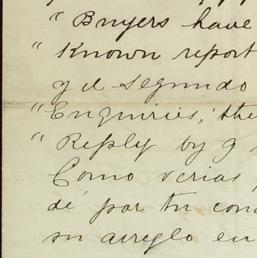 " Buyers have
" Known report
y el segundo
" Enquiries, the
" Reply by g
Como verias
dé por tu con
su arreglo en